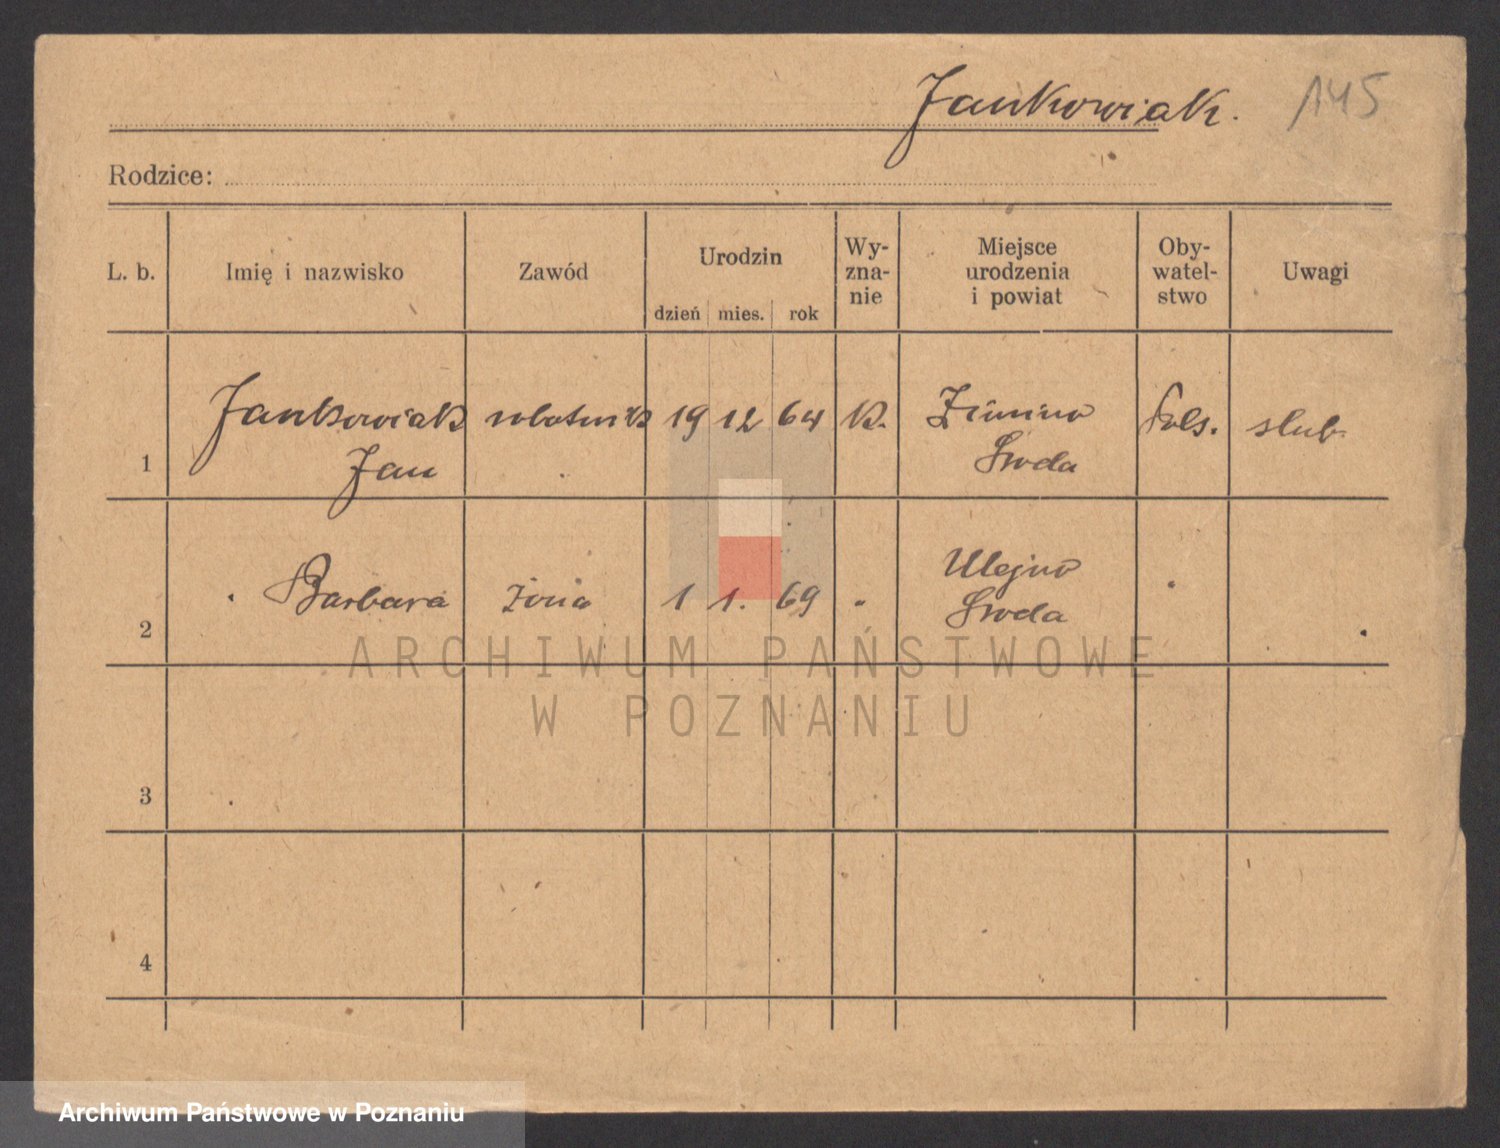 Jankowiak. 145
Rodzice:
L. b. Imię i nazwisko Zawód Urodzin dzień mies. rok Wy-
zna-
nie Miejsce
urodzenia
i powiat Oby-
watel-
stwo Uwagi
1 Jankowiak
Jan robotnik 19 12 64 k. Zimino
Środa Pols. slub.
2 " Barbara żona 1 1. 69 " Ulejno
Środa "
3
4
ARCHIWUM PAŃSTWOWE
W POZNANIU
Archiwum Państwowe w Poznaniu